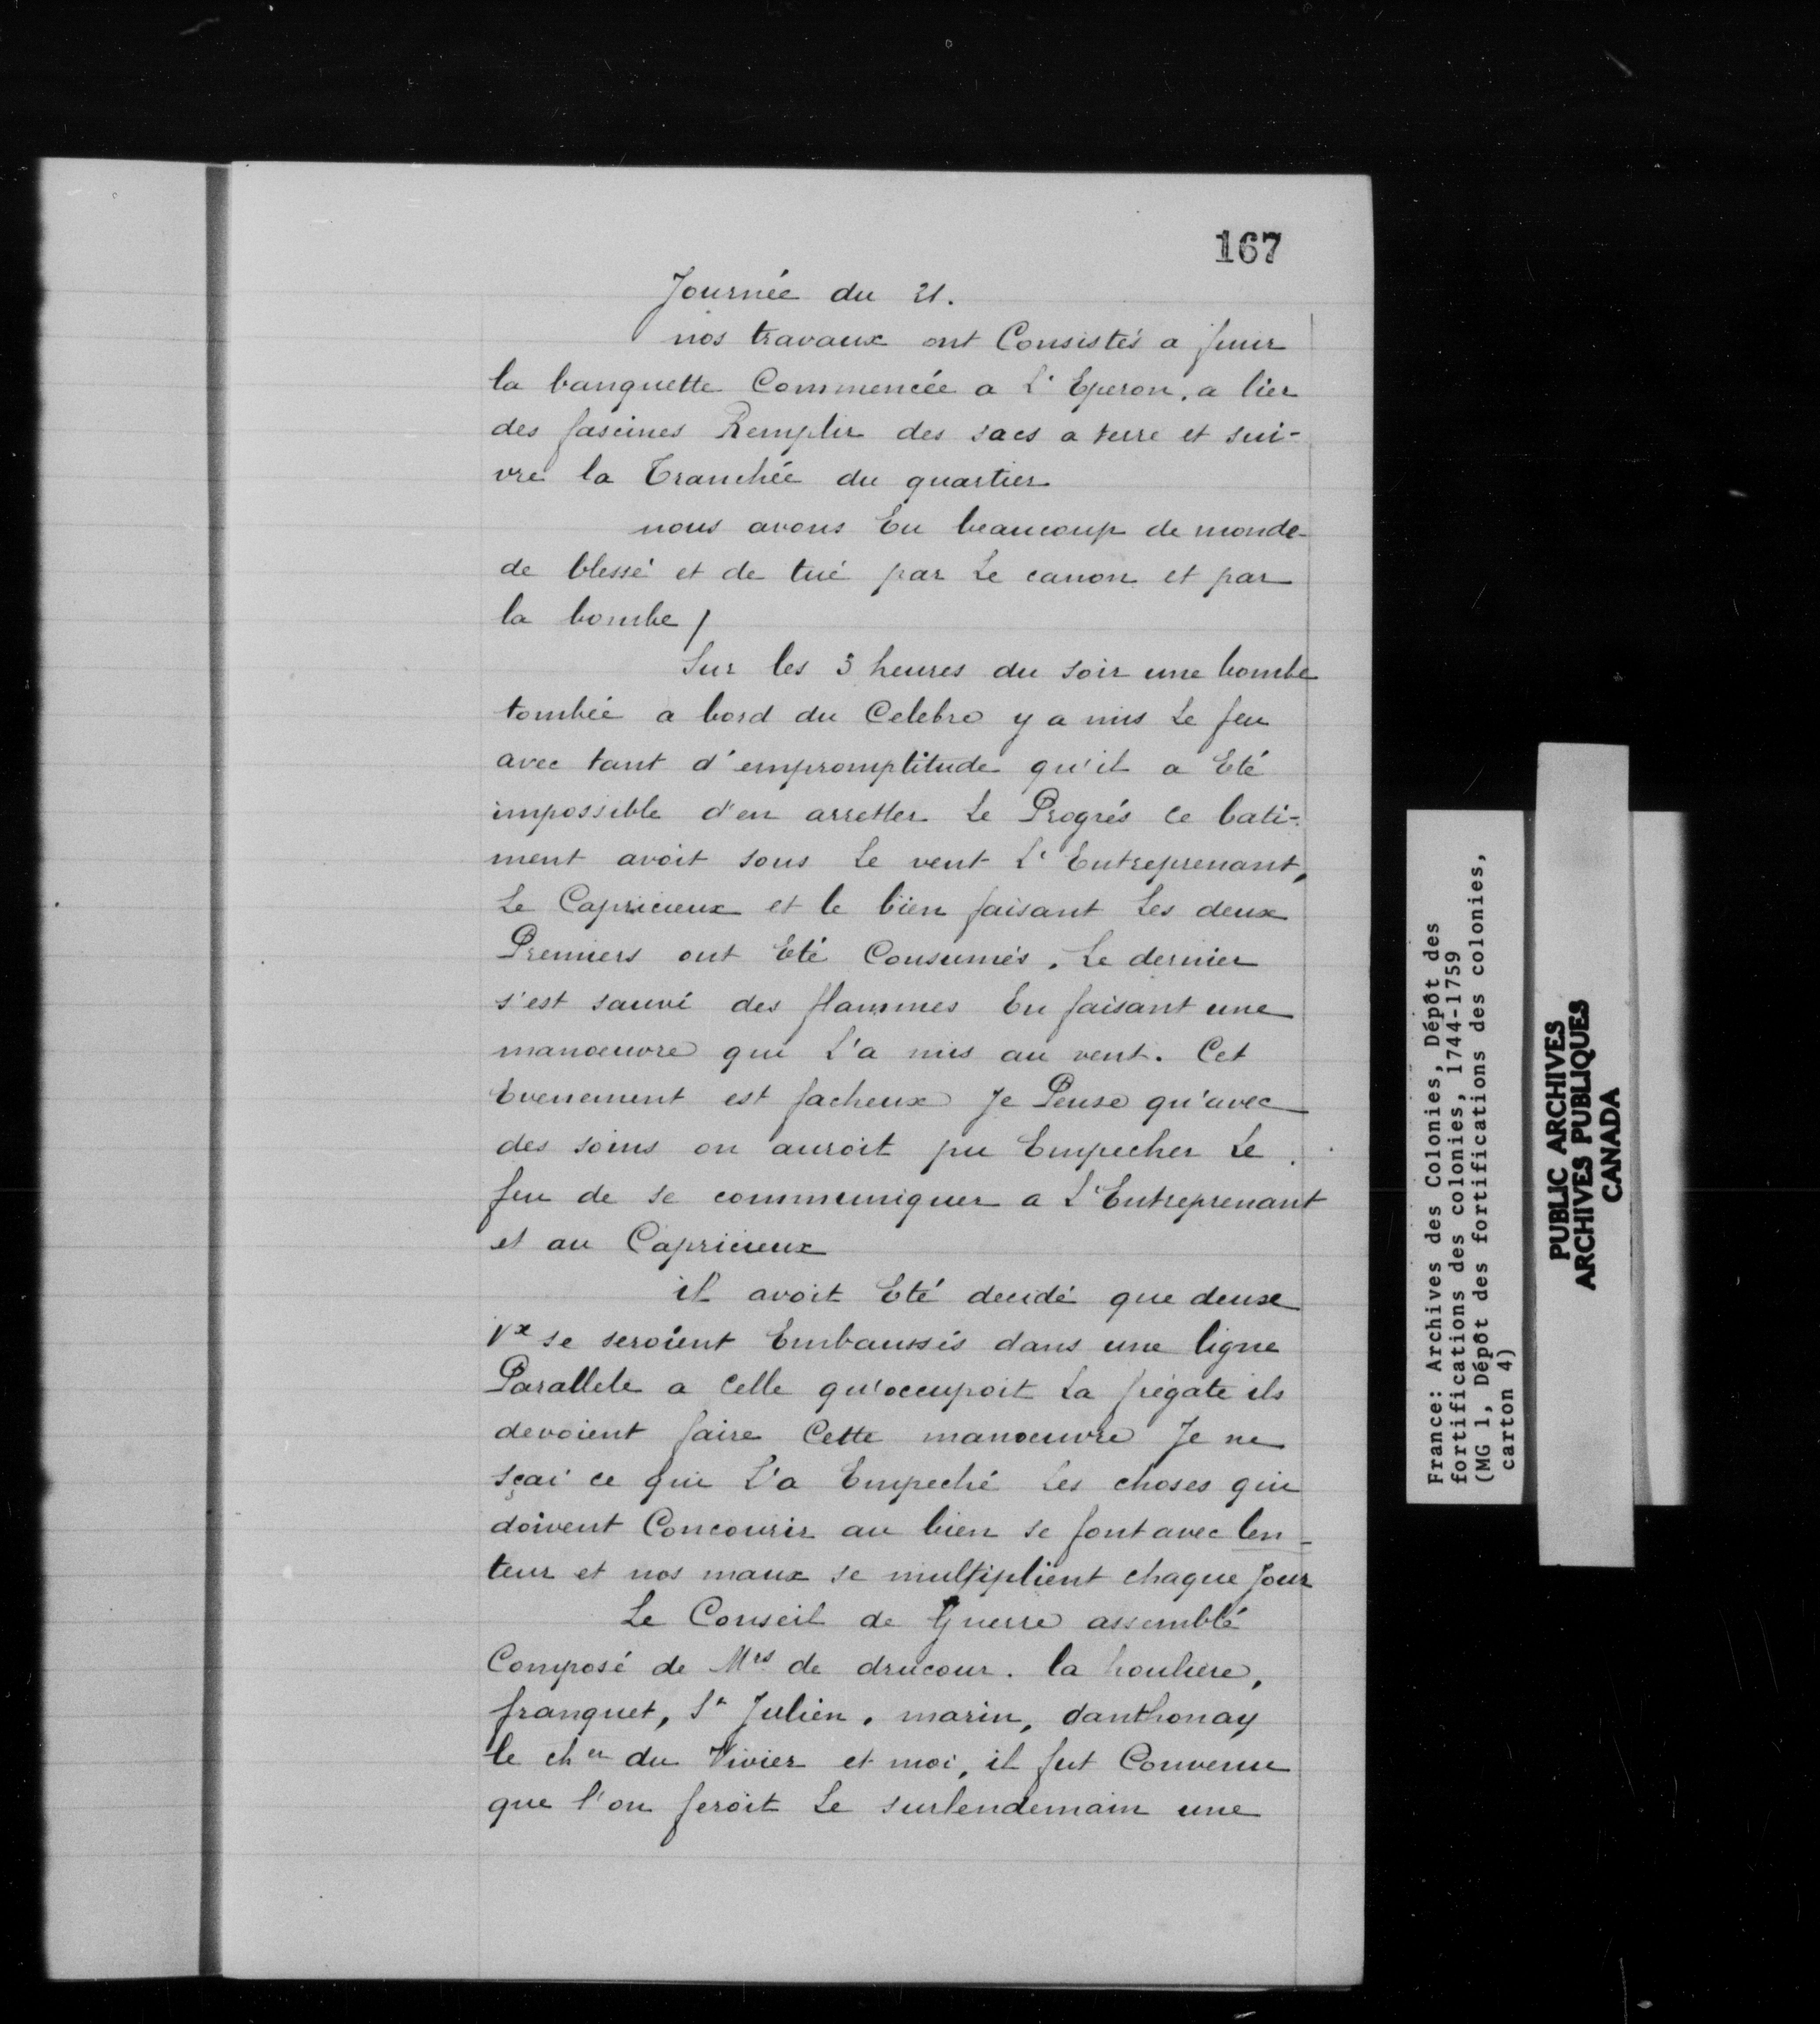 167
Journée du 21.
nos travaux ont Consistés a finir
la banquette Commencée a L'Eperon, a lier
des fascines Remplir des sacs a terre et sui-
vre la Tranchée du quartier
nous avons Eu beaucoup de monde
de blessé et de tué par Le canon et par
la bombe /
Sur les 3 heures du soir une bombe
tombée a bord du Celebre y a mis Le feu
avec tant d'empromptitude qu'il a Eté
impossible d'en arretter Le Progrés Ce bati-
ment avoit sous Le vent L'Entreprenant,
Le Capricieux et le bien faisant Les deux
Premiers ont Eté Consumés, Le dernier
s'est sauvé des flammes En faisant une
manoeuvre qui L'a mis au vent. Cet
Evenement est facheux Je Pense qu'avec
des soins on auroit pu Empecher Le
feu de se communiquer a L'Entreprenant
et au Capricieux
il avoit Eté decidé que deux
Vx se seroient Embaussés dans une ligne
Parallele a Celle qu'occupoit La frégate ils
devoient faire Cette manoeuvre Je ne
sçai ce qui L'a Empeché Les choses qui
doivent Concourir au bien se font avec len-
teur et nos maux se multiplient chaque Jour
Le Conseil de Guerre assemblé
Composé de Mrs de drucour. la houliere,
franquet, St Julien, marin, danthonay
le cher du Vivier et moi, il fut Convenu
que l'on feroit Le surlendemain une
France: Archives des Colonies, Dépôt des
fortifications des colonies, 1744-1759
(MG 1, Dépôt des fortifications des colonies,
carton 4)
PUBLIC ARCHIVES
ARCHIVES PUBLIQUES
CANADA